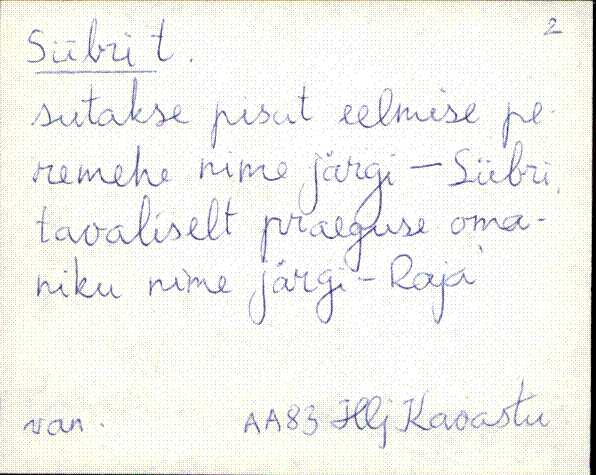 2
Sübri t.
sutakse pisut eelmise pe-
remehe nime järgi – Sübri,
tavaliselt praeguse oma-
niku nime järgi – Raja
van. AA83 Hlj Kavastu